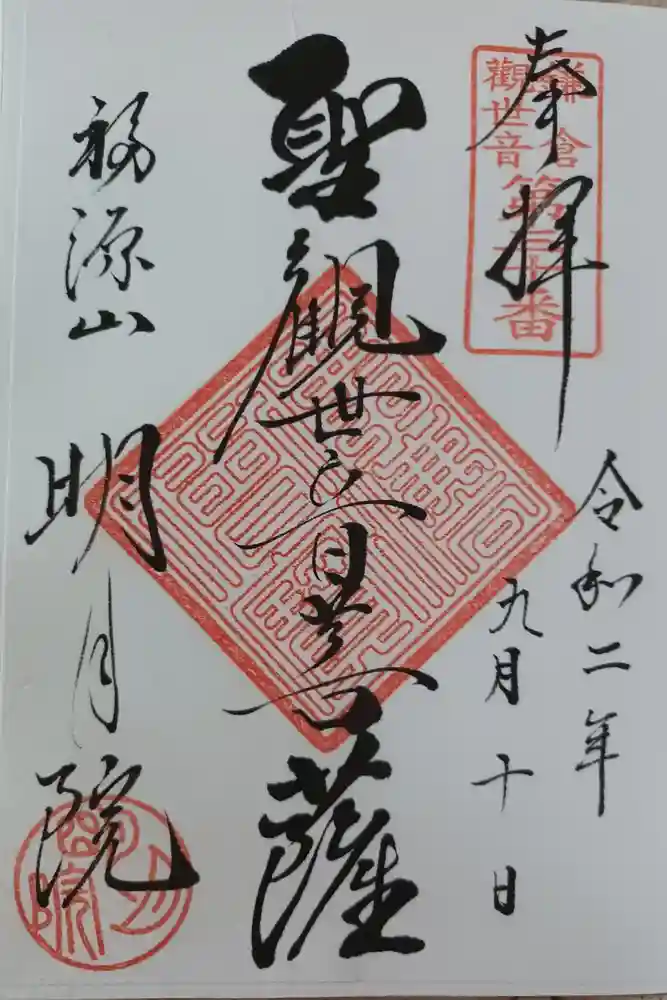 奉拝
鎌倉
觀世音
第三十番
令和二年
九月十日
聖観世音菩薩
福源山
明月院